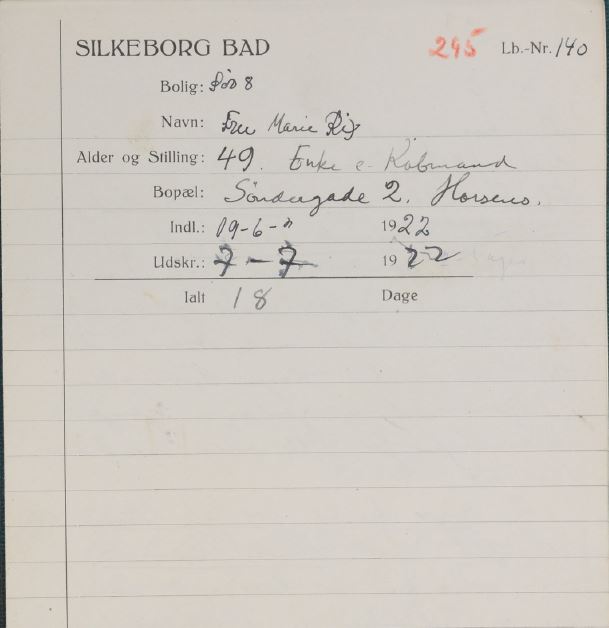 SILKEBORG BAD 295 Lb.-Nr. 140
Bolig: 8
Navn: Fru Marie Rix
Alder og Stilling: 49. Enke e. Købmand
Bopæl: Søndergade 2. Horsens.
Indl.: 19-6-" 1922
Udskr.: 7-7 1922
Ialt 18 Dage